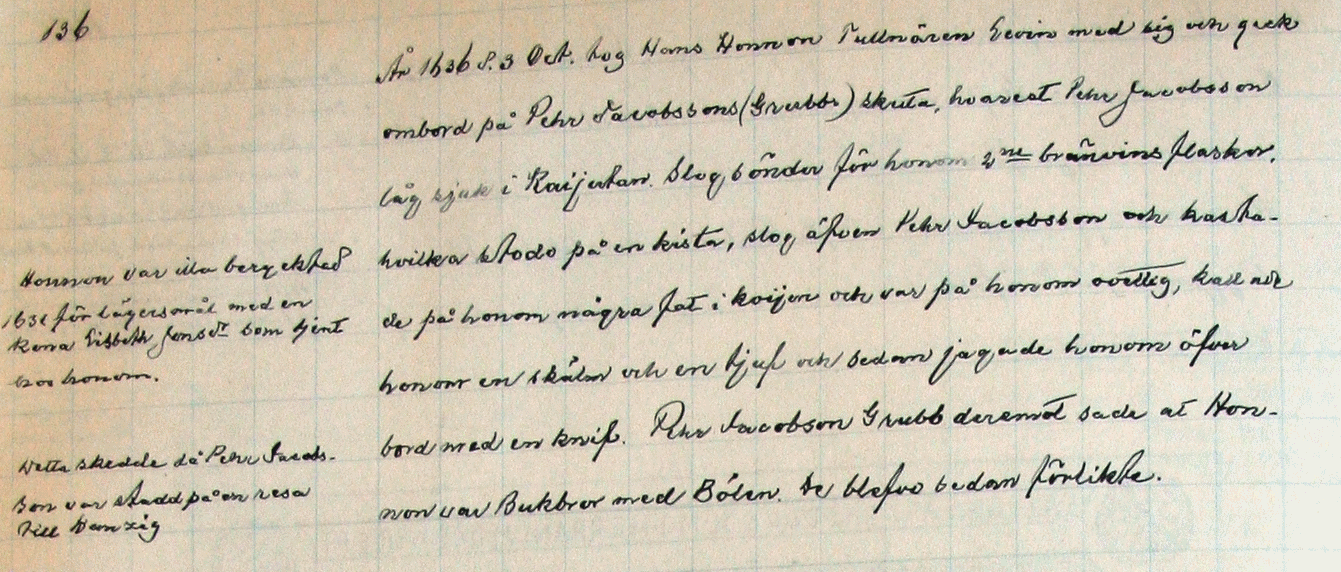 136
År 1636 d. 3 Oct. tog Hans Honnon Tullnären Levin med sig och geck
ombord på Pehr Jacobssons (Grubbs) skuta, hvarest Pehr Jacobsson
låg sjuk i Kaijutan. Slog sönder för honom 2ne bränvins flaskor,
hvilka stodo på en kista, slog äfven Pehr Jacobsson och kasta-
de på honom några fat i koijen och var på honom ovettig, kallade
honom en skälm och en tjuf och sedan jagade honom öfver
bord med en knif. Pehr Jacobson Grubb deremot sade at Hon-
non var Bukbror med Bölen. De blefvo sedan förlikte.
Honnon var illa beryektad
för lägersmål med en
kona Lisbeth Jonsdr som tjent
hos honom.
Detta skedde då Pehr Jacobs-
son var stadd på en resa
till Danzig